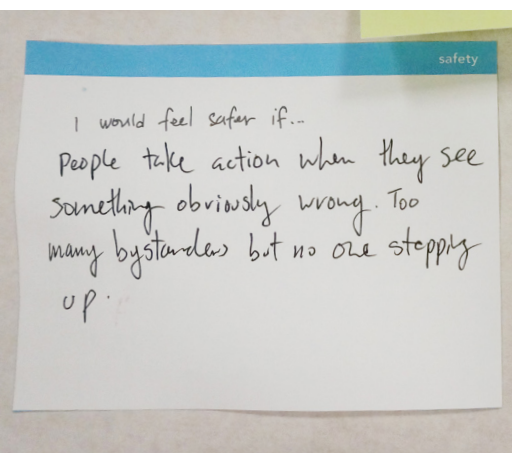 safety
I would feel safer if...
People take action when they see
something obviously wrong. Too
many bystanders but no one stepping
up.